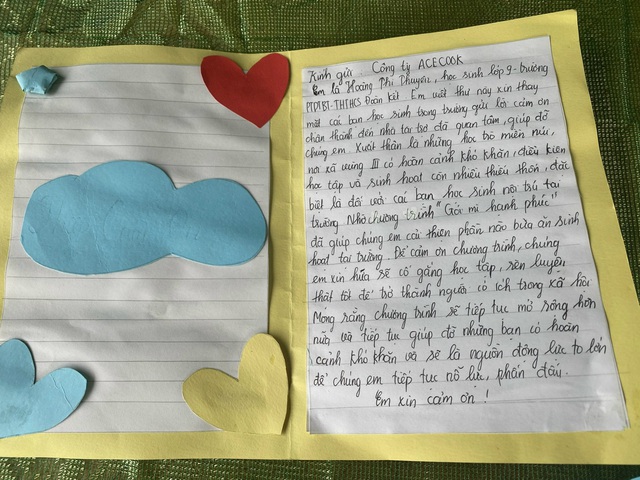 Kính gửi: Công ty ACECOOK
Em là Hoàng Thị Thuyên, học sinh lớp 9 - trường
PTDTBT-THTHCS Đoàn Kết. Em viết thư này xin thay
mặt các bạn học sinh trong trường gửi lời cảm ơn
chân thành đến nhà tài trợ đã quan tâm, giúp đỡ
chúng em. Xuất thân là những học trò miền núi,
xã vùng III có hoàn cảnh khó khăn, điều kiện
học tập và sinh hoạt còn nhiều thiếu thốn, đặc
biệt là đối với các bạn học sinh nội trú tại
trường. Nhờ chương trình "Gói mì hạnh phúc"
đã giúp chúng em cải thiện phần nào bữa ăn sinh
hoạt tại trường. Để cảm ơn chương trình, chúng
em xin hứa sẽ cố gắng học tập, rèn luyện
thật tốt để trở thành người có ích trong xã hội
Mong rằng chương trình sẽ tiếp tục mở rộng hơn
nữa và tiếp tục giúp đỡ những bạn có hoàn
cảnh khó khăn và sẽ là nguồn động lực to lớn
để chúng em tiếp tục nỗ lực, phấn đấu.
Em xin cảm ơn !